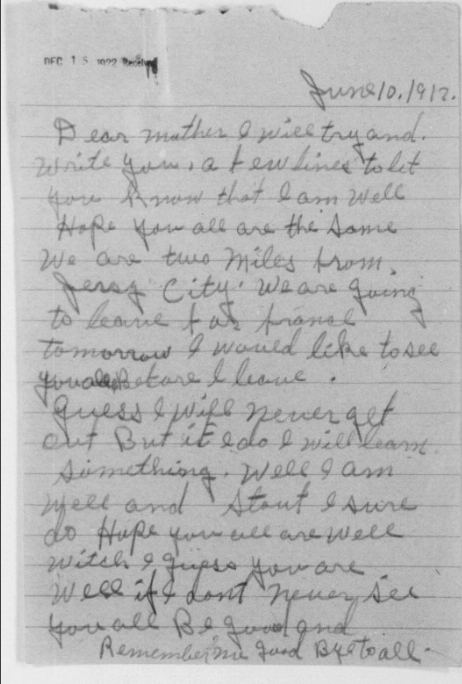 DEC 15 1922 Received
June 10. 1917.
Dear mother I will try and.
write you. a few lines to let
you know that I am well
Hope you all are the same
We are two Miles from.
Jersy City. We are going
to leave for france
tomorrow I would like to see
you all Before I leave.
Guess I will never get
out But if I do I will learn.
Something. Well I am
Well and Stout I sure
do Hope you all are well
Witch I guess you are
Well if I dont never see
you all Be good and
Remember me good Bye to all.